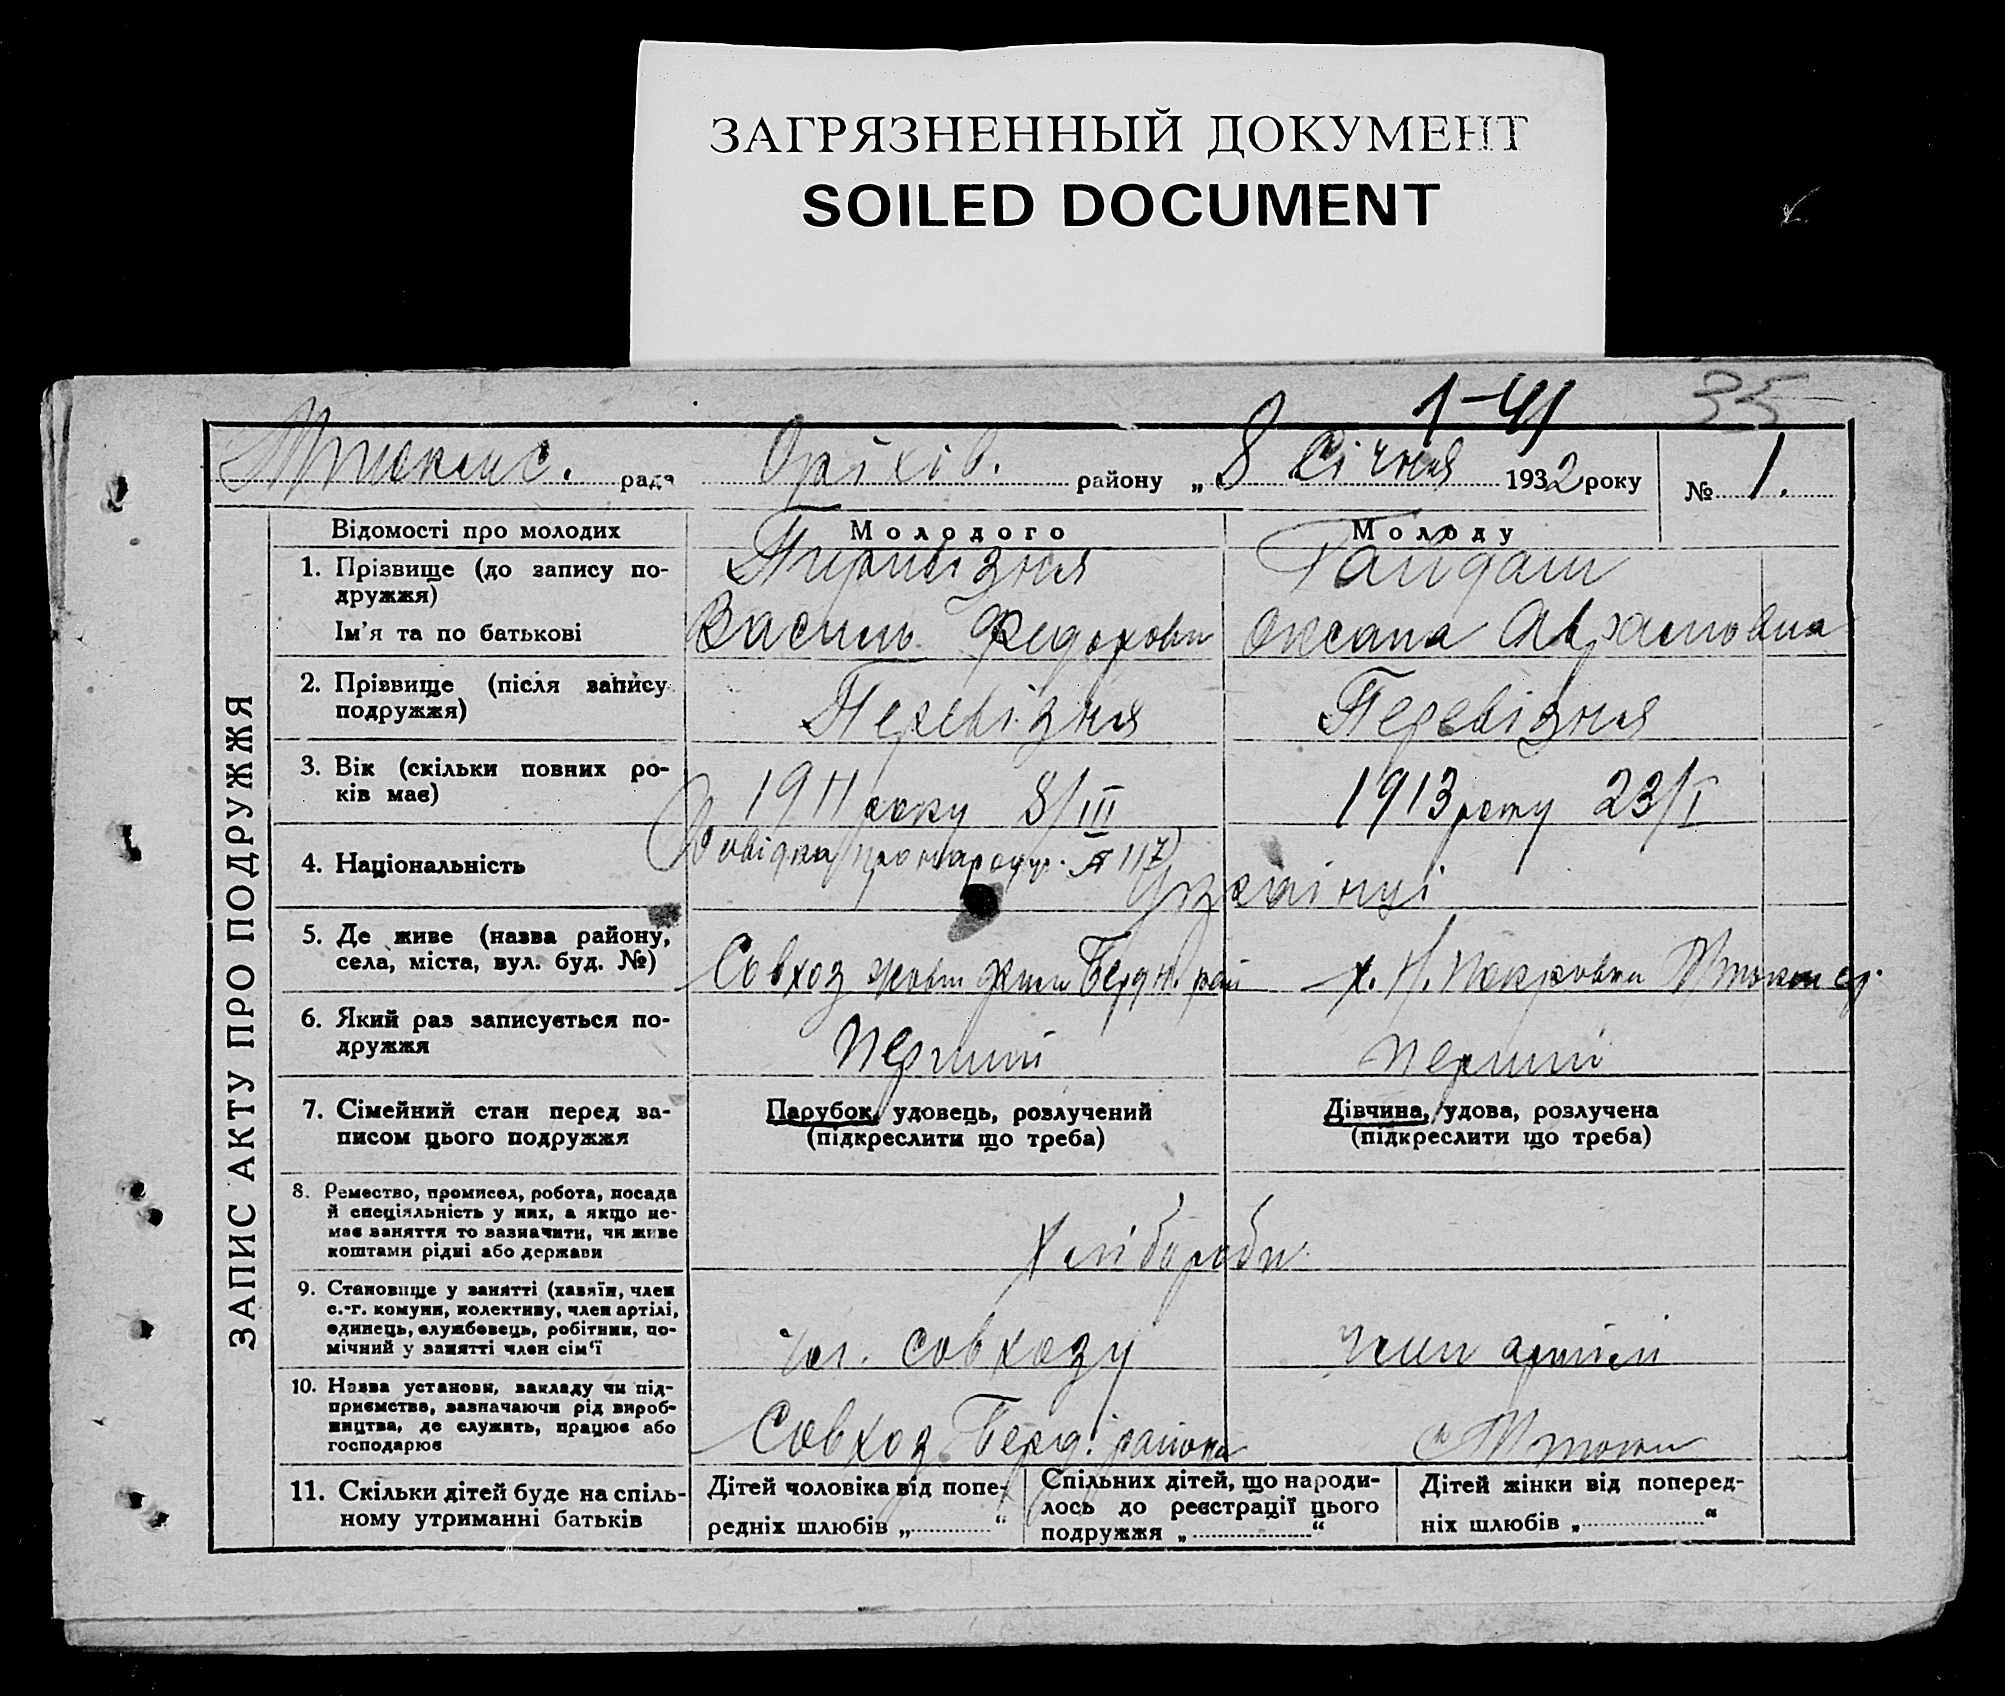 ЗАГРЯЗНЕННЫЙ ДОКУМЕНТ
SOILED DOCUMENT
1-41 35
рада Оріхів. району „ 8 Січня 1932 року № 1.
ЗАПИС АКТУ ПРО ПОДРУЖЖЯ
Відомості про молодих
Молодого
Молоду
1. Прізвище (до запису по-
дружжя)
Ім'я та по батькові
Перевізня
Василь Федорови
Гайдаш
Оксана Аврамовна
2. Прізвище (після запису
подружжя)
Перевізня
Перевізня
3. Вік (скільки повних ро-
ків має)
1911 року 8/III
1913 року 23/I
4. Національність
Довідка про народж. № 117
Українці
5. Де живе (назва району,
села, міста, вул. буд. №)
Совхоз Берд. рай
х. Н. Покровка
6. Який раз записується по-
дружжя
Перший
перший
7. Сімейний стан перед за-
писом цього подружжя
Парубок, удовець, розлучений
(підкреслити що треба)
Дівчина, удова, розлучена
(підкреслити що треба)
8. Ремество, промисел, робота, посада
й спеціяльність у них, а якщо не-
має заняття то зазначити, чи живе
коштами рідні або держави
Хлібороби
9. Становище у занятті (хазяїн, член
с.-г. комуни, колективу, член артілі,
одинець, службовець, робітник, по-
мічний у занятті член сім'ї
чл. совхозу
член артілі
10. Назва установи, закладу чи під-
приємства, зазначаючи рід вироб-
ництва, де служить, працює або
господарює
Совхоз Берд. района
11. Скільки дітей буде на спіль-
ному утриманні батьків
Дітей чоловіка від попе-
редніх шлюбів „ “
Спільних дітей, що народи-
лось до реєстрації цього
подружжя „ “
Дітей жінки від поперед-
ніх шлюбів „ “